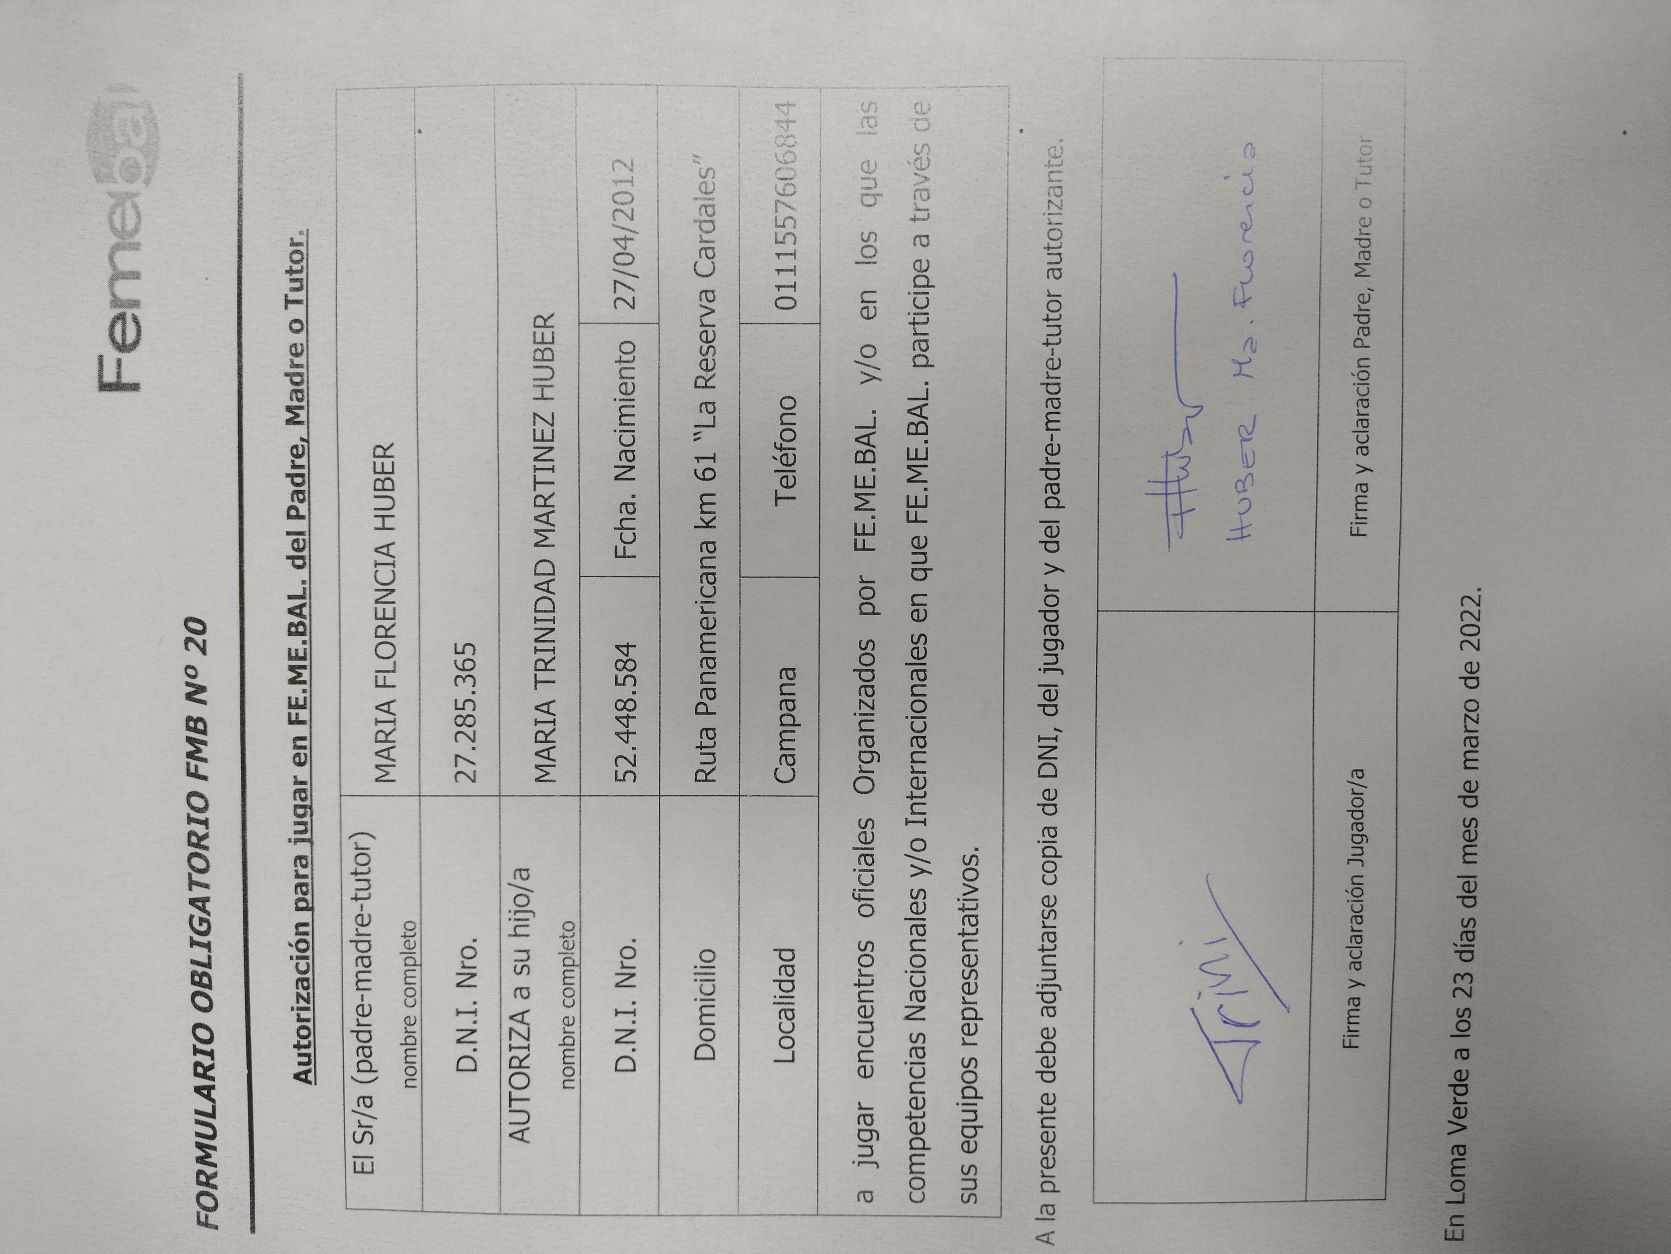 Femebal
FORMULARIO OBLIGATORIO FMB Nº 20
Autorización para jugar en FE.ME.BAL. del Padre, Madre o Tutor.
El Sr/a (padre-madre-tutor) MARIA FLORENCIA HUBER
nombre completo
D.N.I. Nro. 27.285.365
AUTORIZA a su hijo/a MARIA TRINIDAD MARTINEZ HUBER
nombre completo
D.N.I. Nro. 52.448.584 Fcha. Nacimiento 27/04/2012
Domicilio Ruta Panamericana km 61 “La Reserva Cardales”
Localidad Campana Teléfono 0111557606844
a jugar encuentros oficiales Organizados por FE.ME.BAL. y/o en los que las
competencias Nacionales y/o Internacionales en que FE.ME.BAL. participe a través de
sus equipos representativos.
A la presente debe adjuntarse copia de DNI, del jugador y del padre-madre-tutor autorizante.
Trini Huber
HUBER Ma. Florencia
Firma y aclaración Jugador/a Firma y aclaración Padre, Madre o Tutor
En Loma Verde a los 23 días del mes de marzo de 2022.